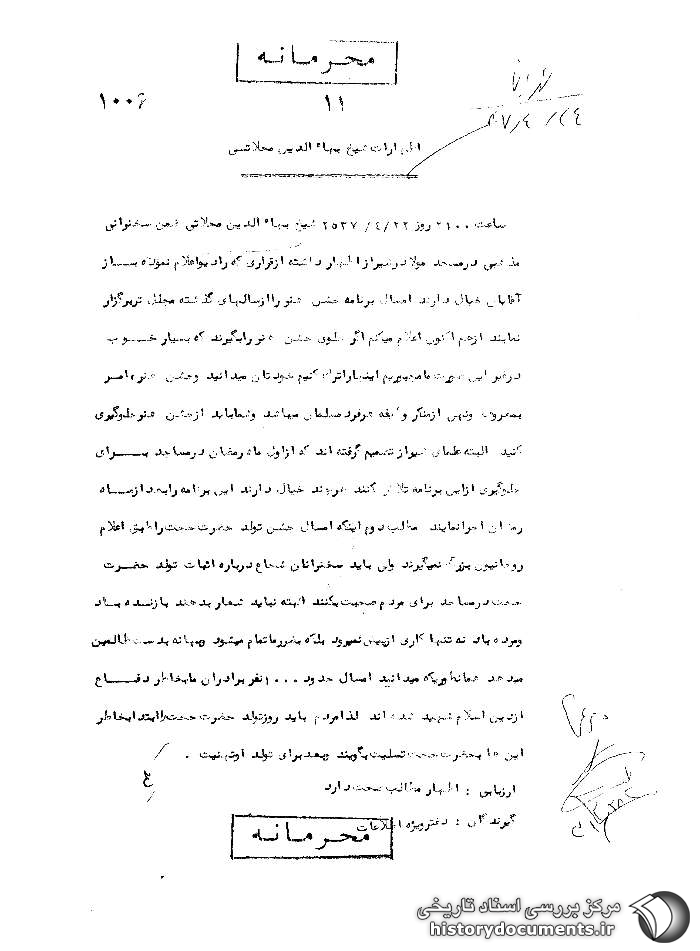 محرمانه
۱۰۰۶
۱۱
۳۷/۴/۲۴
اظهارات شیخ بهاء الدین محلاتی
ساعت ۲۱۰۰ روز ۲۵۳۷/۴/۲۲ شیخ بهاء الدین محلاتی ضمن سخنرانی
مذهبی در مسجد مولا در شیراز اظهار داشته از قراری که رادیو اعلام نموده باز
آقایان خیال دارند امسال برنامه جشن هنر را از سالهای گذشته مجلل تر برگزار
نمایند از هم اکنون اعلام میکنم اگر جلوی جشن هنر را بگیرند که بسیار خوب
در غیر این صورت ما مجبوریم اینجا را ترک کنیم خودتان میدانید و جشن هنر، امر
بمعروف و نهی از منکر وظیفه هر فرد مسلمان میباشد و شما باید از جشن هنر جلوگیری
کنید البته علمای شیراز تصمیم گرفته اند که از اول ماه رمضان در مساجد برای
جلوگیری از این برنامه تلاش کنند هرچند خیال دارند این برنامه را بعد از ماه
رمضان اجرا نمایند مطلب دوم اینکه امسال جشن تولد حضرت حجت را طبق اعلام
روحانیون بزرگ نمیگیرند ولی باید سخنرانان شجاع درباره اثبات تولد حضرت
حجت در مساجد برای مردم صحبت بکنند البته نباید شعار بدهند با زنده باد
و مرده باد نه تنها کاری از پیش نمیرود بلکه بضرر ما تمام میشود و بهانه بدست ظالمین
میدهد همانطوریکه میدانید امسال حدود ۱۰۰۰ نفر برادران ما بخاطر دفاع
از دین اسلام شهید شده اند لذا مردم باید روز تولد حضرت حجت را ابتدا بخاطر
این ها بحضرت حجت تسلیت بگویند و بعد برای تولد او تهنیت .
ارزیابی : اظهار مطالب صحت دارد
گیرندگان : دفتر ویژه اطلاعات
محرمانه
مرکز بررسی اسناد تاریخی
historydocuments.ir